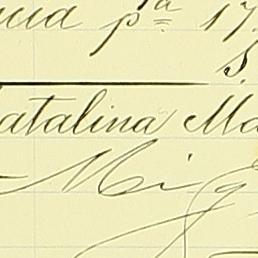 cia pª 17.
S.
atalina Ma
Mig